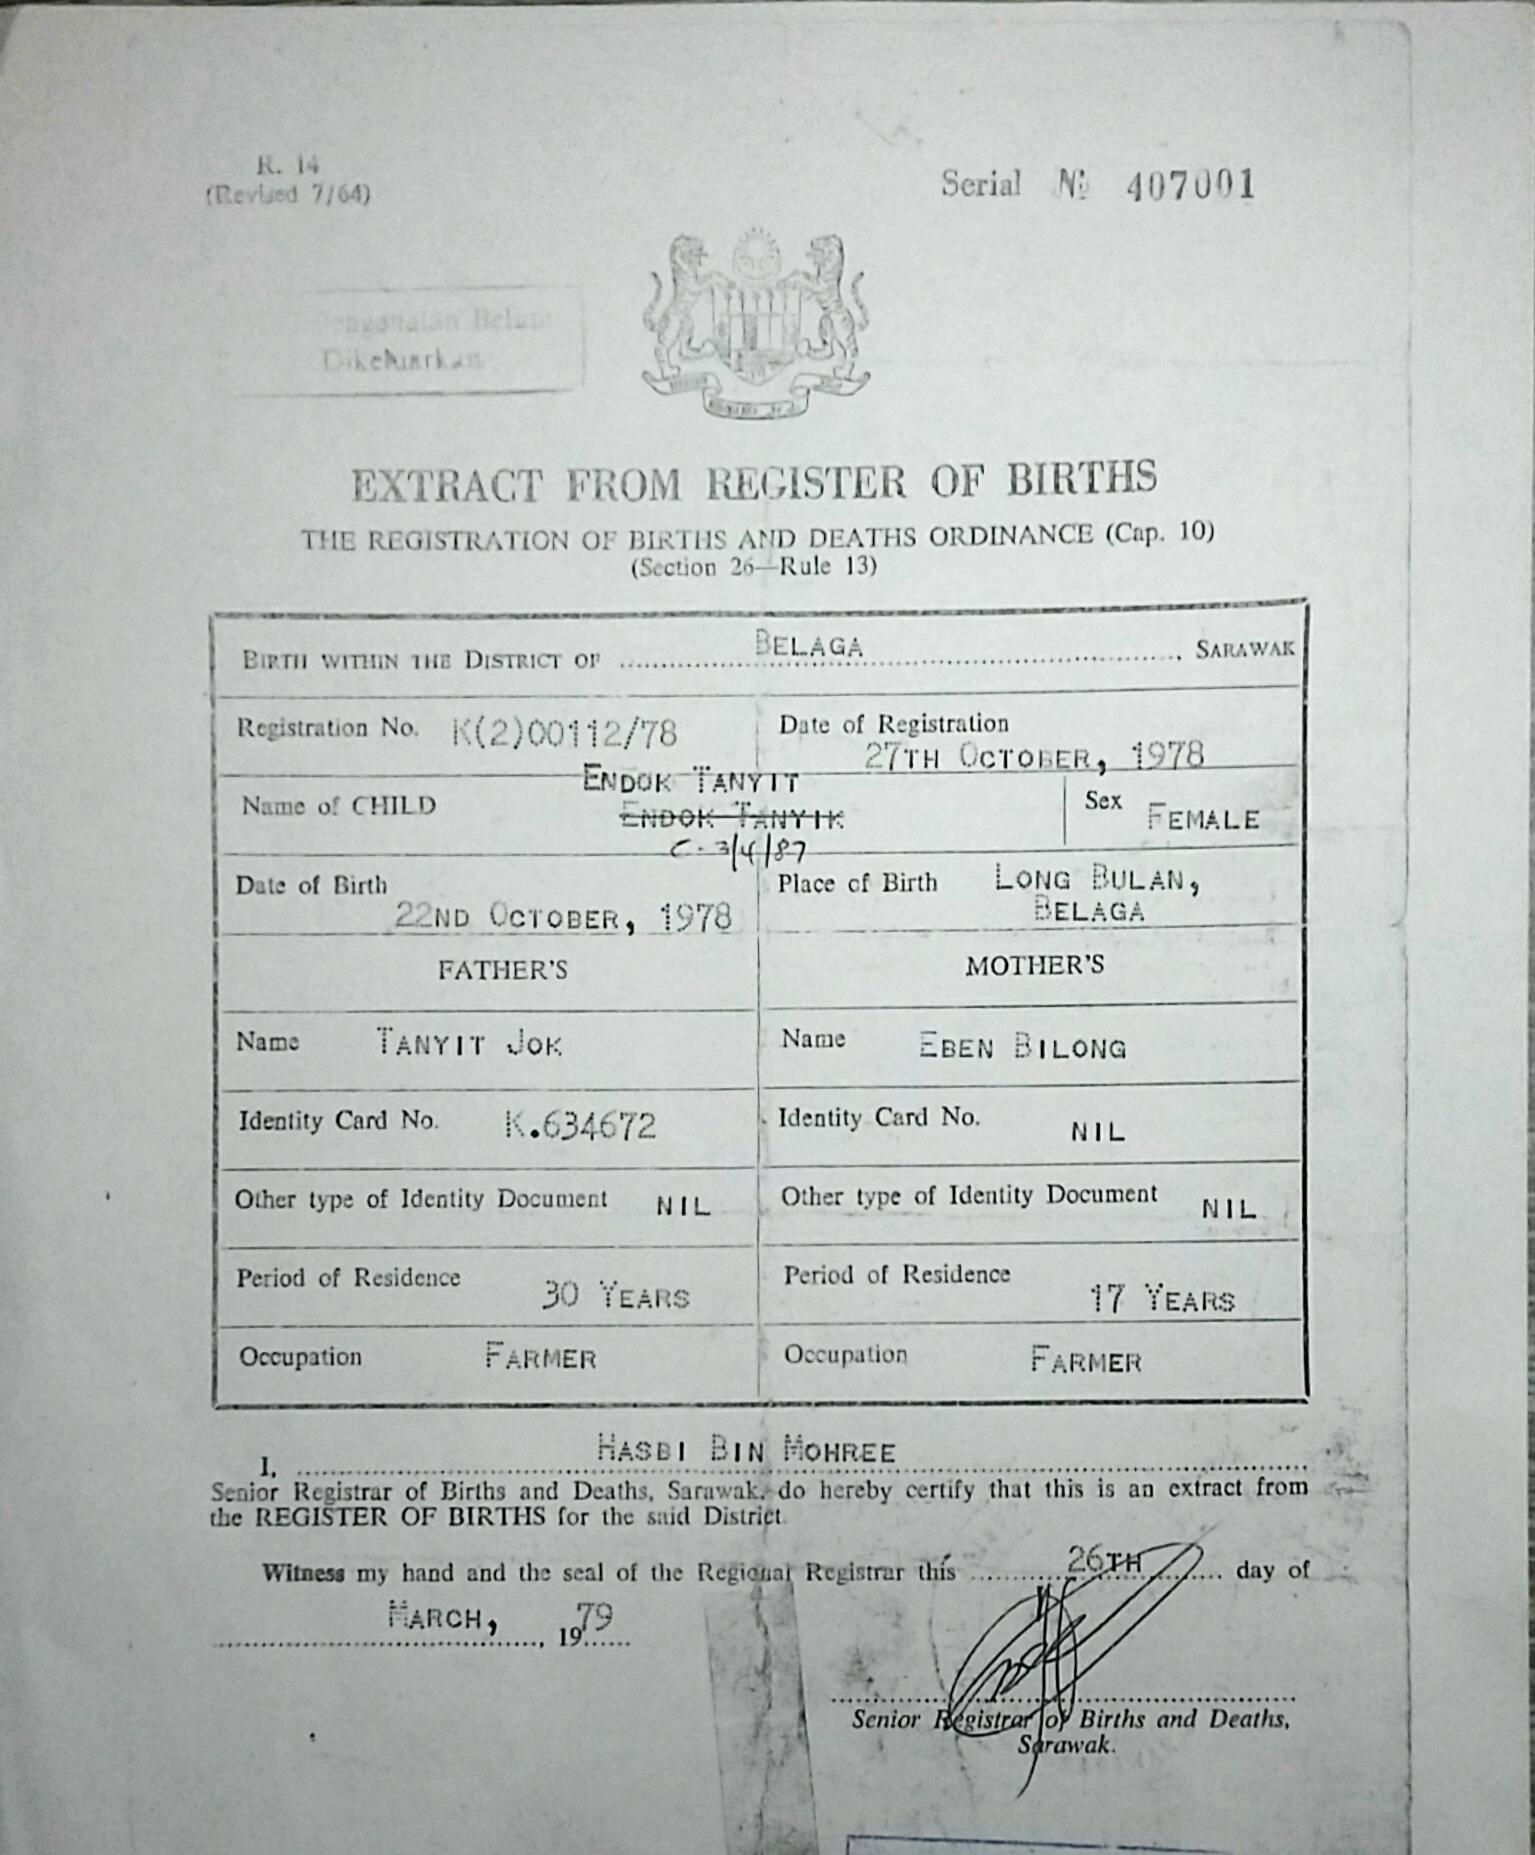 R. 14
(Revised 7/64)
Serial № 407001
Pengenalan Belum
Dikeluarkan
EXTRACT FROM REGISTER OF BIRTHS
THE REGISTRATION OF BIRTHS AND DEATHS ORDINANCE (Cap. 10)
(Section 26—Rule 13)
BIRTH WITHIN THE DISTRICT OF BELAGA, SARAWAK
Registration No. K(2)00112/78
Date of Registration
27TH OCTOBER, 1978
ENDOK TANYIT
Name of CHILD ENDOK TANYIK
C. 3/4/87
Sex FEMALE
Date of Birth
22ND OCTOBER, 1978
Place of Birth LONG BULAN,
BELAGA
FATHER'S
MOTHER'S
Name TANYIT JOK
Name EBEN BILONG
Identity Card No. K.634672
Identity Card No. NIL
Other type of Identity Document NIL
Other type of Identity Document NIL
Period of Residence 30 YEARS
Period of Residence 17 YEARS
Occupation FARMER
Occupation FARMER
I, HASBI BIN MOHREE
Senior Registrar of Births and Deaths, Sarawak, do hereby certify that this is an extract from
the REGISTER OF BIRTHS for the said District.
Witness my hand and the seal of the Regional Registrar this 26TH day of
MARCH, 1979
Senior Registrar of Births and Deaths,
Sarawak.